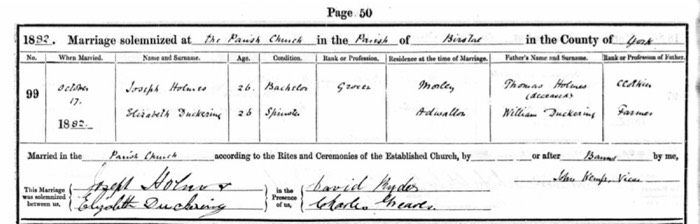 Page 50
1882. Marriage solemnized at the Parish Church in the Parish of Birstal in the County of York
No. When Married. Name and Surname. Age. Condition. Rank or Profession. Residence at the time of Marriage. Father's Name and Surname. Rank or Profession of Father.
99 October 17. 1882. Joseph Holmes 26. Bachelor Grocer Morley Thomas Holmes (deceased) Clothier
Elizabeth Duckering 26 Spinster Adwalton William Duckering Farmer
Married in the Parish Church according to the Rites and Ceremonies of the Established Church, by or after Banns by me,
John Kemp, Vicar
This Marriage was solemnized between us, Joseph Holmes Elizabeth Duckering in the Presence of us, David Charles Greaves.